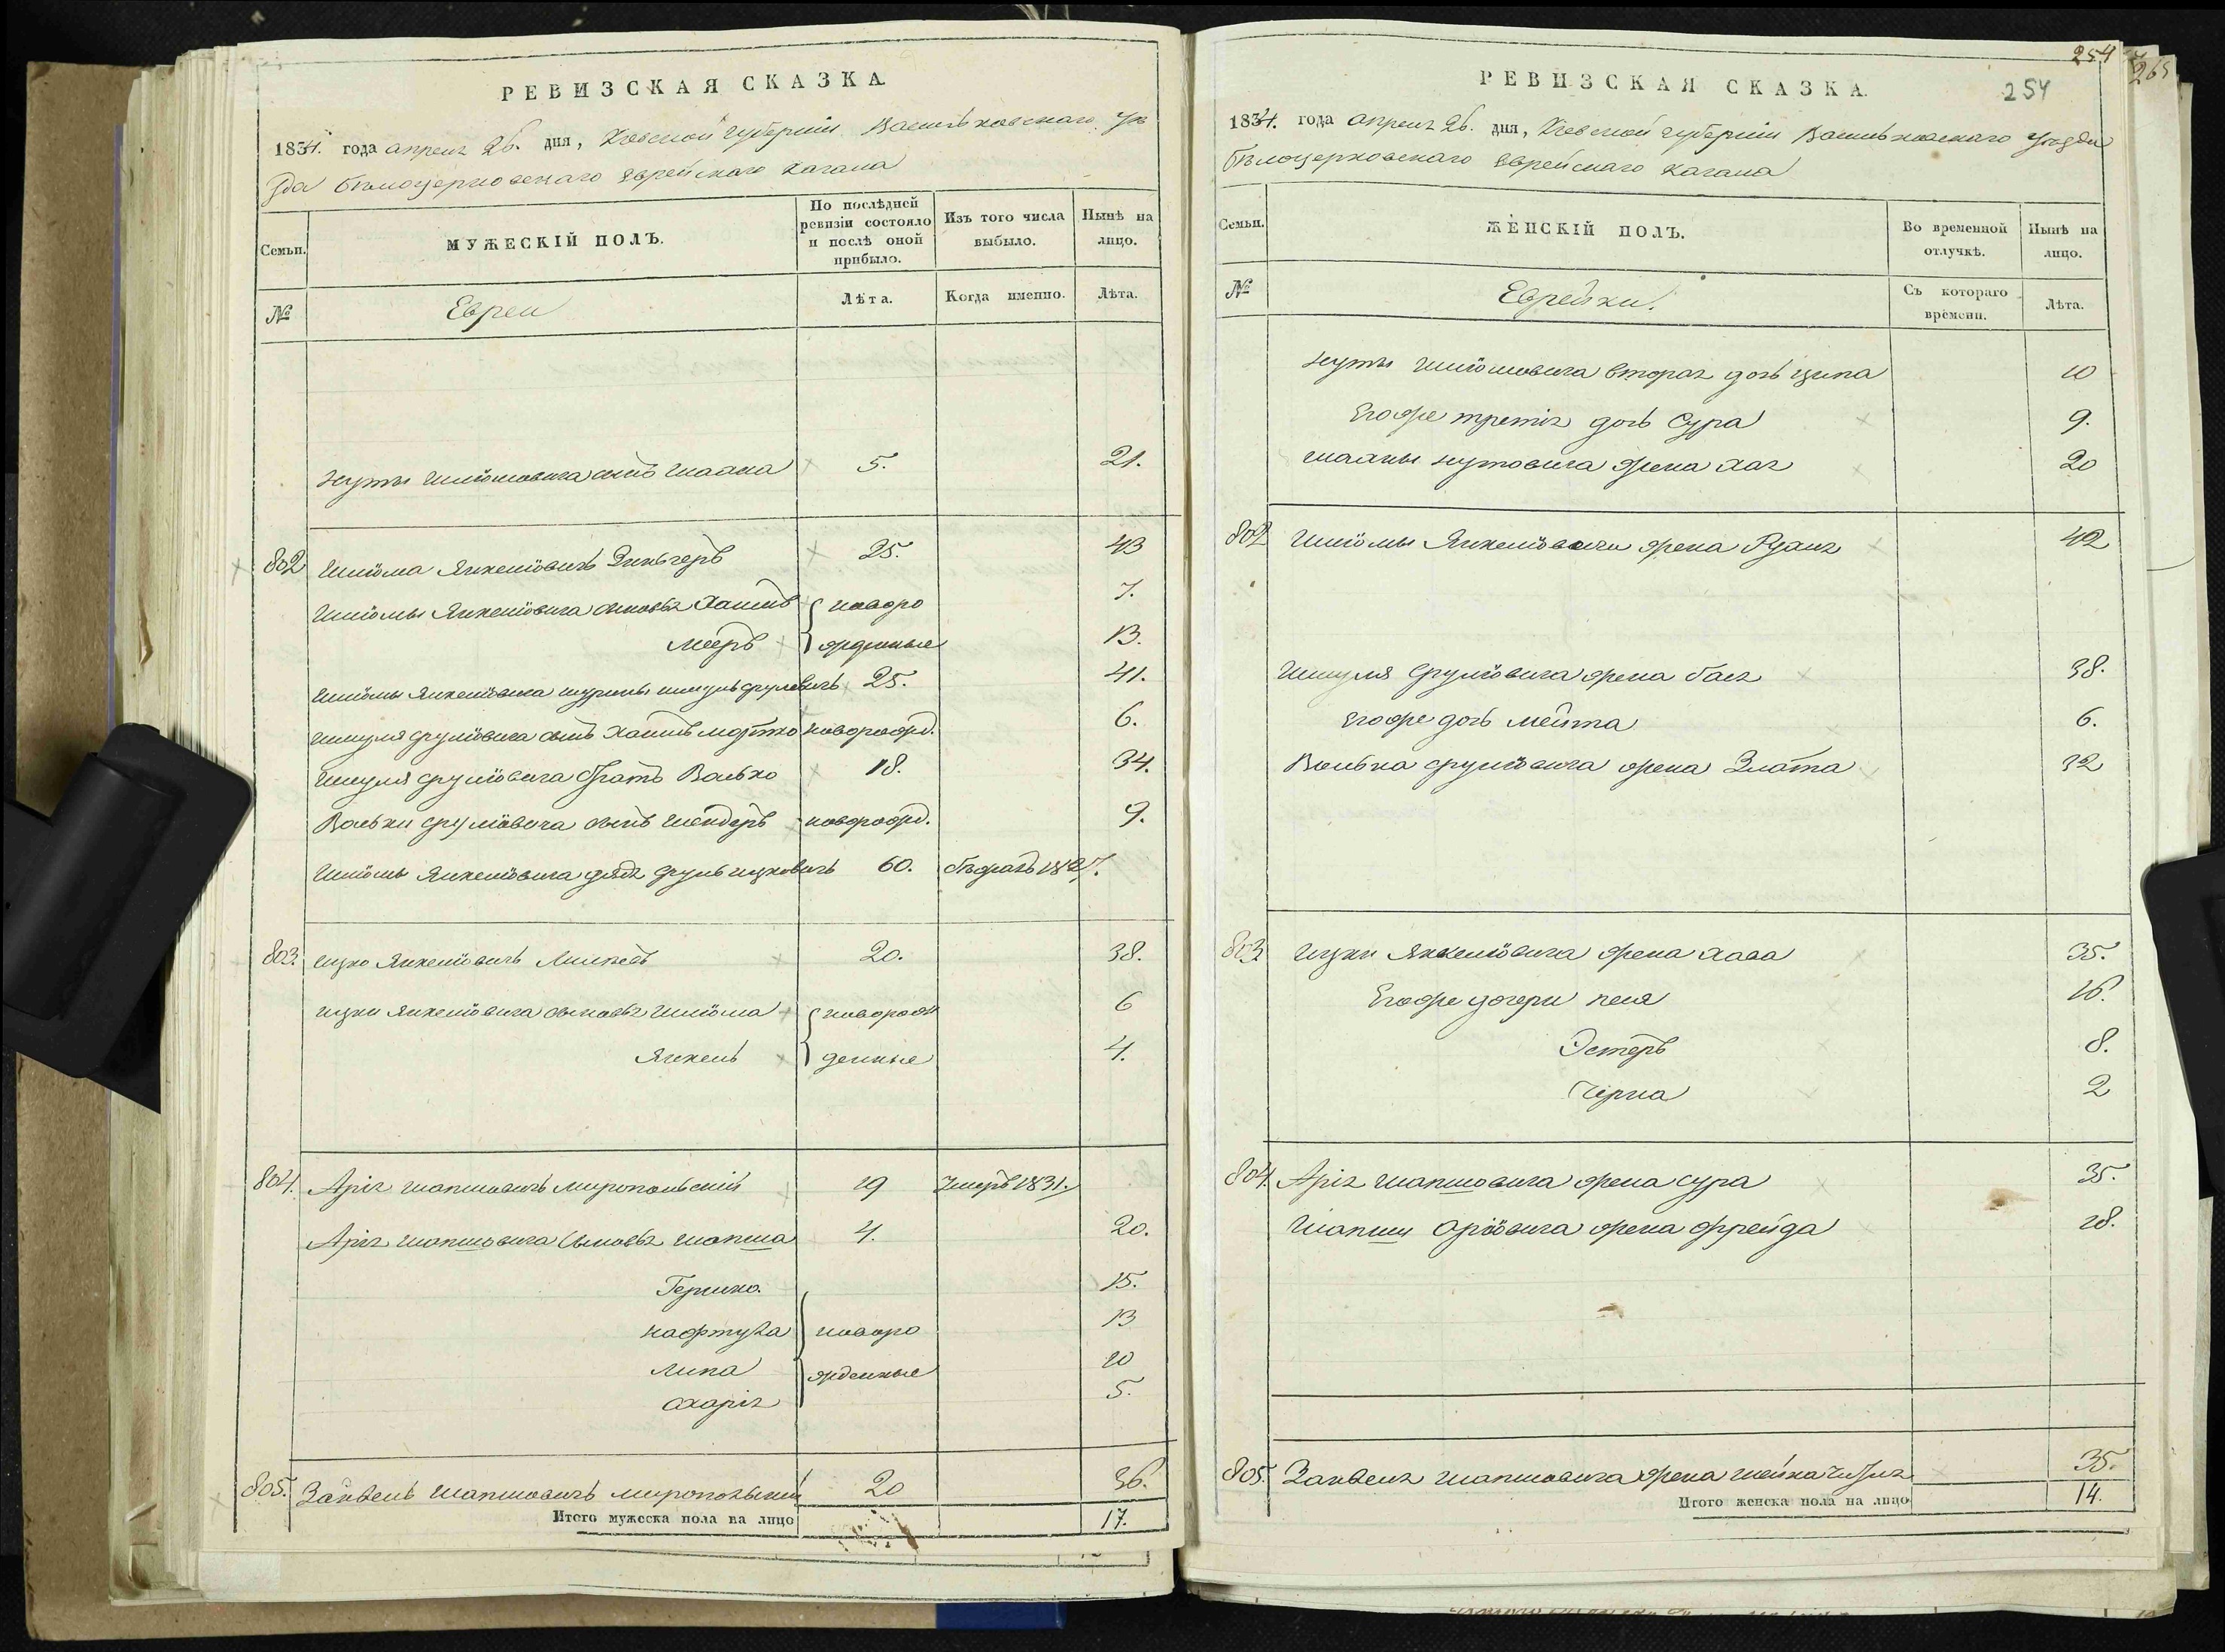 РЕВИЗСКАЯ СКАЗКА
1834. года апреля 26. дня, Кіевской губерніи Васильковскаго уѣ
зда бѣлоцерковскаго Еврейскаго кагала
Семьи.
МУЖЕСКІЙ ПОЛЪ.
По послѣдней ревизіи состояло и послѣ оной прибыло.
Изъ того числа выбыло.
Нынѣ на лицо.
№
Евреи
Лѣта.
Когда именно.
Лѣта.
Нуты Шліомовича сынъ Шаана 5. 21.
802 Шліома Янкеліовичъ 25. 43
Шліомы Янкеліовича сыновья Хаимъ новоро 7.
Мееръ жденные 13.
Шліомы Янкеліовича шуринъ Шмуль Срулевичъ 25. 41.
Шмуля Сруліовича сынъ Хаимъ Мортко новорожд. 6.
Шмуля Сруліовича братъ Волько 18. 34.
Вольки Сруліовича сынъ новорожд. 9.
Шліомы Янкеліовича дядя Сруль Ицковичъ 60. 1827.
803. Ицко Янкеліовичъ 20. 38.
Ицки Янкеліовича сыновья Шліома новорож 6
Янкель денные 4.
804. Арія Шапшовичъ Миропольскій 19 Умеръ 1831.
Арія Шапшовича сыновья Шапша 4. 20.
Гершко. 15.
Нафтула новоро 13
Липа жденные 10
Захарія 5.
805. Занвель Шапшовичъ Миропольскій 20 36.
Итого мужеска пола на лицо 17.
254
265
РЕВИЗСКАЯ СКАЗКА
254
1834. года апреля 26. дня, Кіевской губерніи Васильковскаго уѣзда
бѣлоцерковскаго Еврейскаго кагала
Семьи.
ЖЕНСКІЙ ПОЛЪ.
Во временной отлучкѣ.
Нынѣ на лицо.
№
Еврейки.
Съ котораго времени.
Лѣта.
Нуты Шліомовича вторая дочь Ципа 10
Егоже третія дочь Сура 9.
Шааны Нутовича жена Хая 20
802 Шліомы Янкеліовича жена 42
Шмуля Сруліовича жена Бася 38.
Егоже дочь Мейта 6.
Волька Сруліовича жена Злота 32
803 Ицки Янкеліовича жена Хава 35.
Егоже дочери Песя 16.
Эстеръ 8.
Черна 2
804. Арія Шапшовича жена Сура 35.
Шапши Оріовича жена Фрейда 18.
805. Занвеля Шапшовича жена 35.
Итого женска пола на лицо 14.